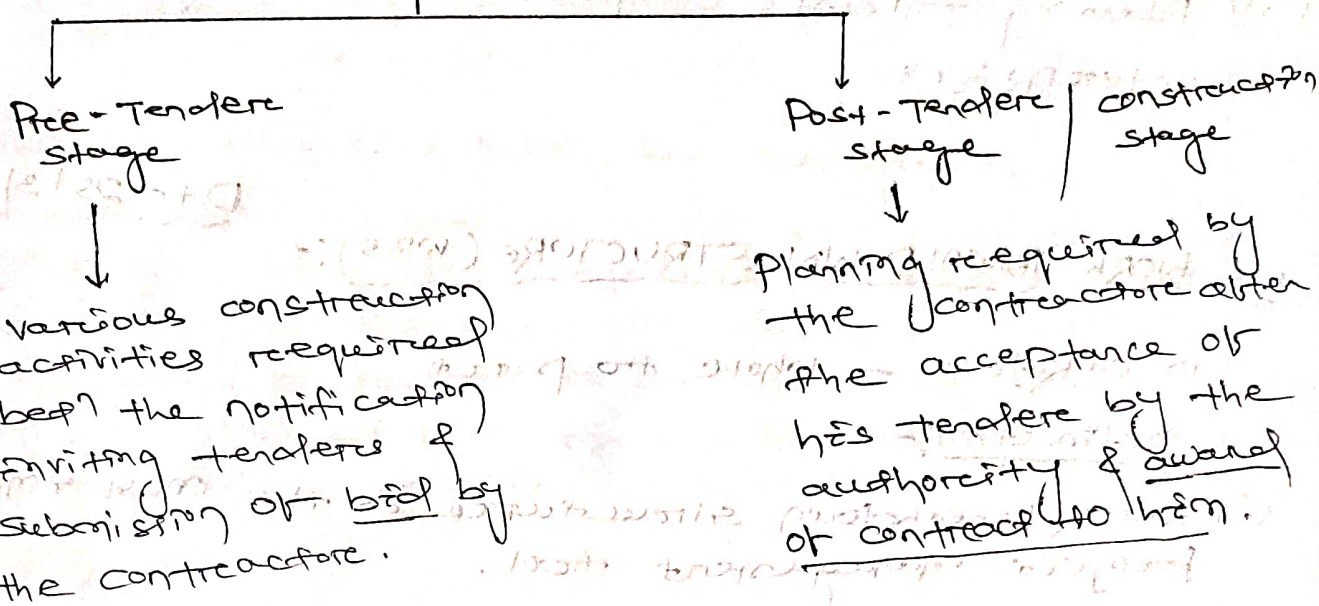 Pre-Tender
stage
various construction
activities required
betn the notification
inviting tenders &
submission of bid by
the contractor.
Post-Tender / construction
stage stage
Planning required by
the contractor after
the acceptance of
his tender by the
authority & award
of contract to him.